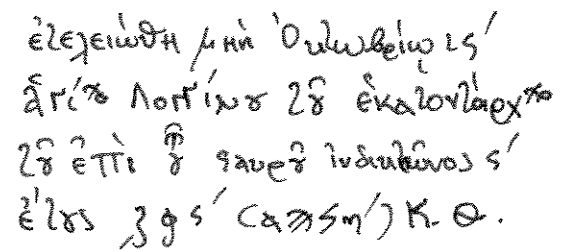 ἐτελειώθη μηνὶ Ὀκτωβρίῳ ις΄
ἁγίου Λογγίνου τοῦ ἑκατοντάρχου
τοῦ ἐπὶ τοῦ σταυροῦ ἰνδικτιῶνος ς΄
ἔτους ͵ζφς΄ (αϡϟη΄) Κ. Θ.